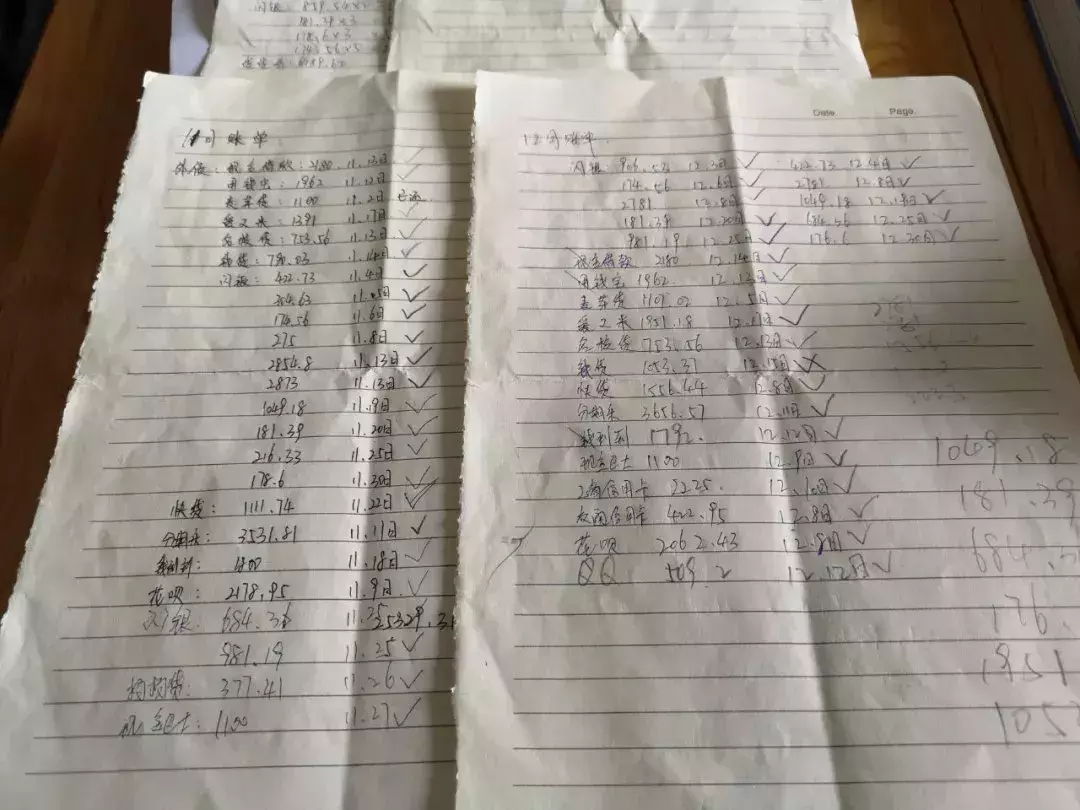 闪银: 859.54×2
181.39×3
178.6×3
1743.56×5
11月账单:
现金借款: 2180 11.13日 ✓
用钱宝: 1962 11.12日 ✓
1100 11.2日 已还
爱又米: 1391 11.17日 ✓
名校贷: 753.56 11.13日 ✓
11.14日 ✓
闪银: 422.73 11.4日 ✓
11.5日 ✓
174.56 11.6日 ✓
275 11.8日 ✓
2854.8 11.13日 ✓
2873 11.13日 ✓
1049.18 11.19日 ✓
181.39 11.20日 ✓
216.33 11.25日 ✓
178.6 11.30日 ✓
快贷: 1111.74 11.22日 ✓
分期乐: 3531.81 11.11日 ✓
11.18日 ✓
花呗: 2178.95 11.9日 ✓
闪银: 684.36
981.19 11.25 ✓
377.41 11.26 ✓
现金巴士: 1100 11.27 ✓
Date. Page.
12月账单
闪银: 906.52 12.3日 ✓ 422.73 12.4日 ✓
174.56 12.6日 ✓ 2781 12.8日 ✓
2781 12.8日 ✓ 1049.18 12.19日 ✓
181.39 12.20日 ✓ 684.36 12.25日 ✓
981.19 12.25日 ✓ 176.6 12.30日 ✓
现金借款 2180 12.14日 ✓
用钱宝 1962. 12.12日 ✓
1109.02 12.5日 ✓
爱又米 1951.18 12.17日 ✓
名校贷 753.56 12.13日 ✓
钱贷 1053.37 12.15日
快贷 1556.44 12.8日 ✓
分期乐 3656.57 12.11日 ✓
1792. 12.12日 ✓
现金巴士 1100 12.9日 ✓
工商信用卡 2225. 12.10日 ✓
422.95 12.8日 ✓
花呗 2062.43 12.9日 ✓
QQ 509.2 12.12日 ✓
1069.18
181.39
684.
176.
1951
105